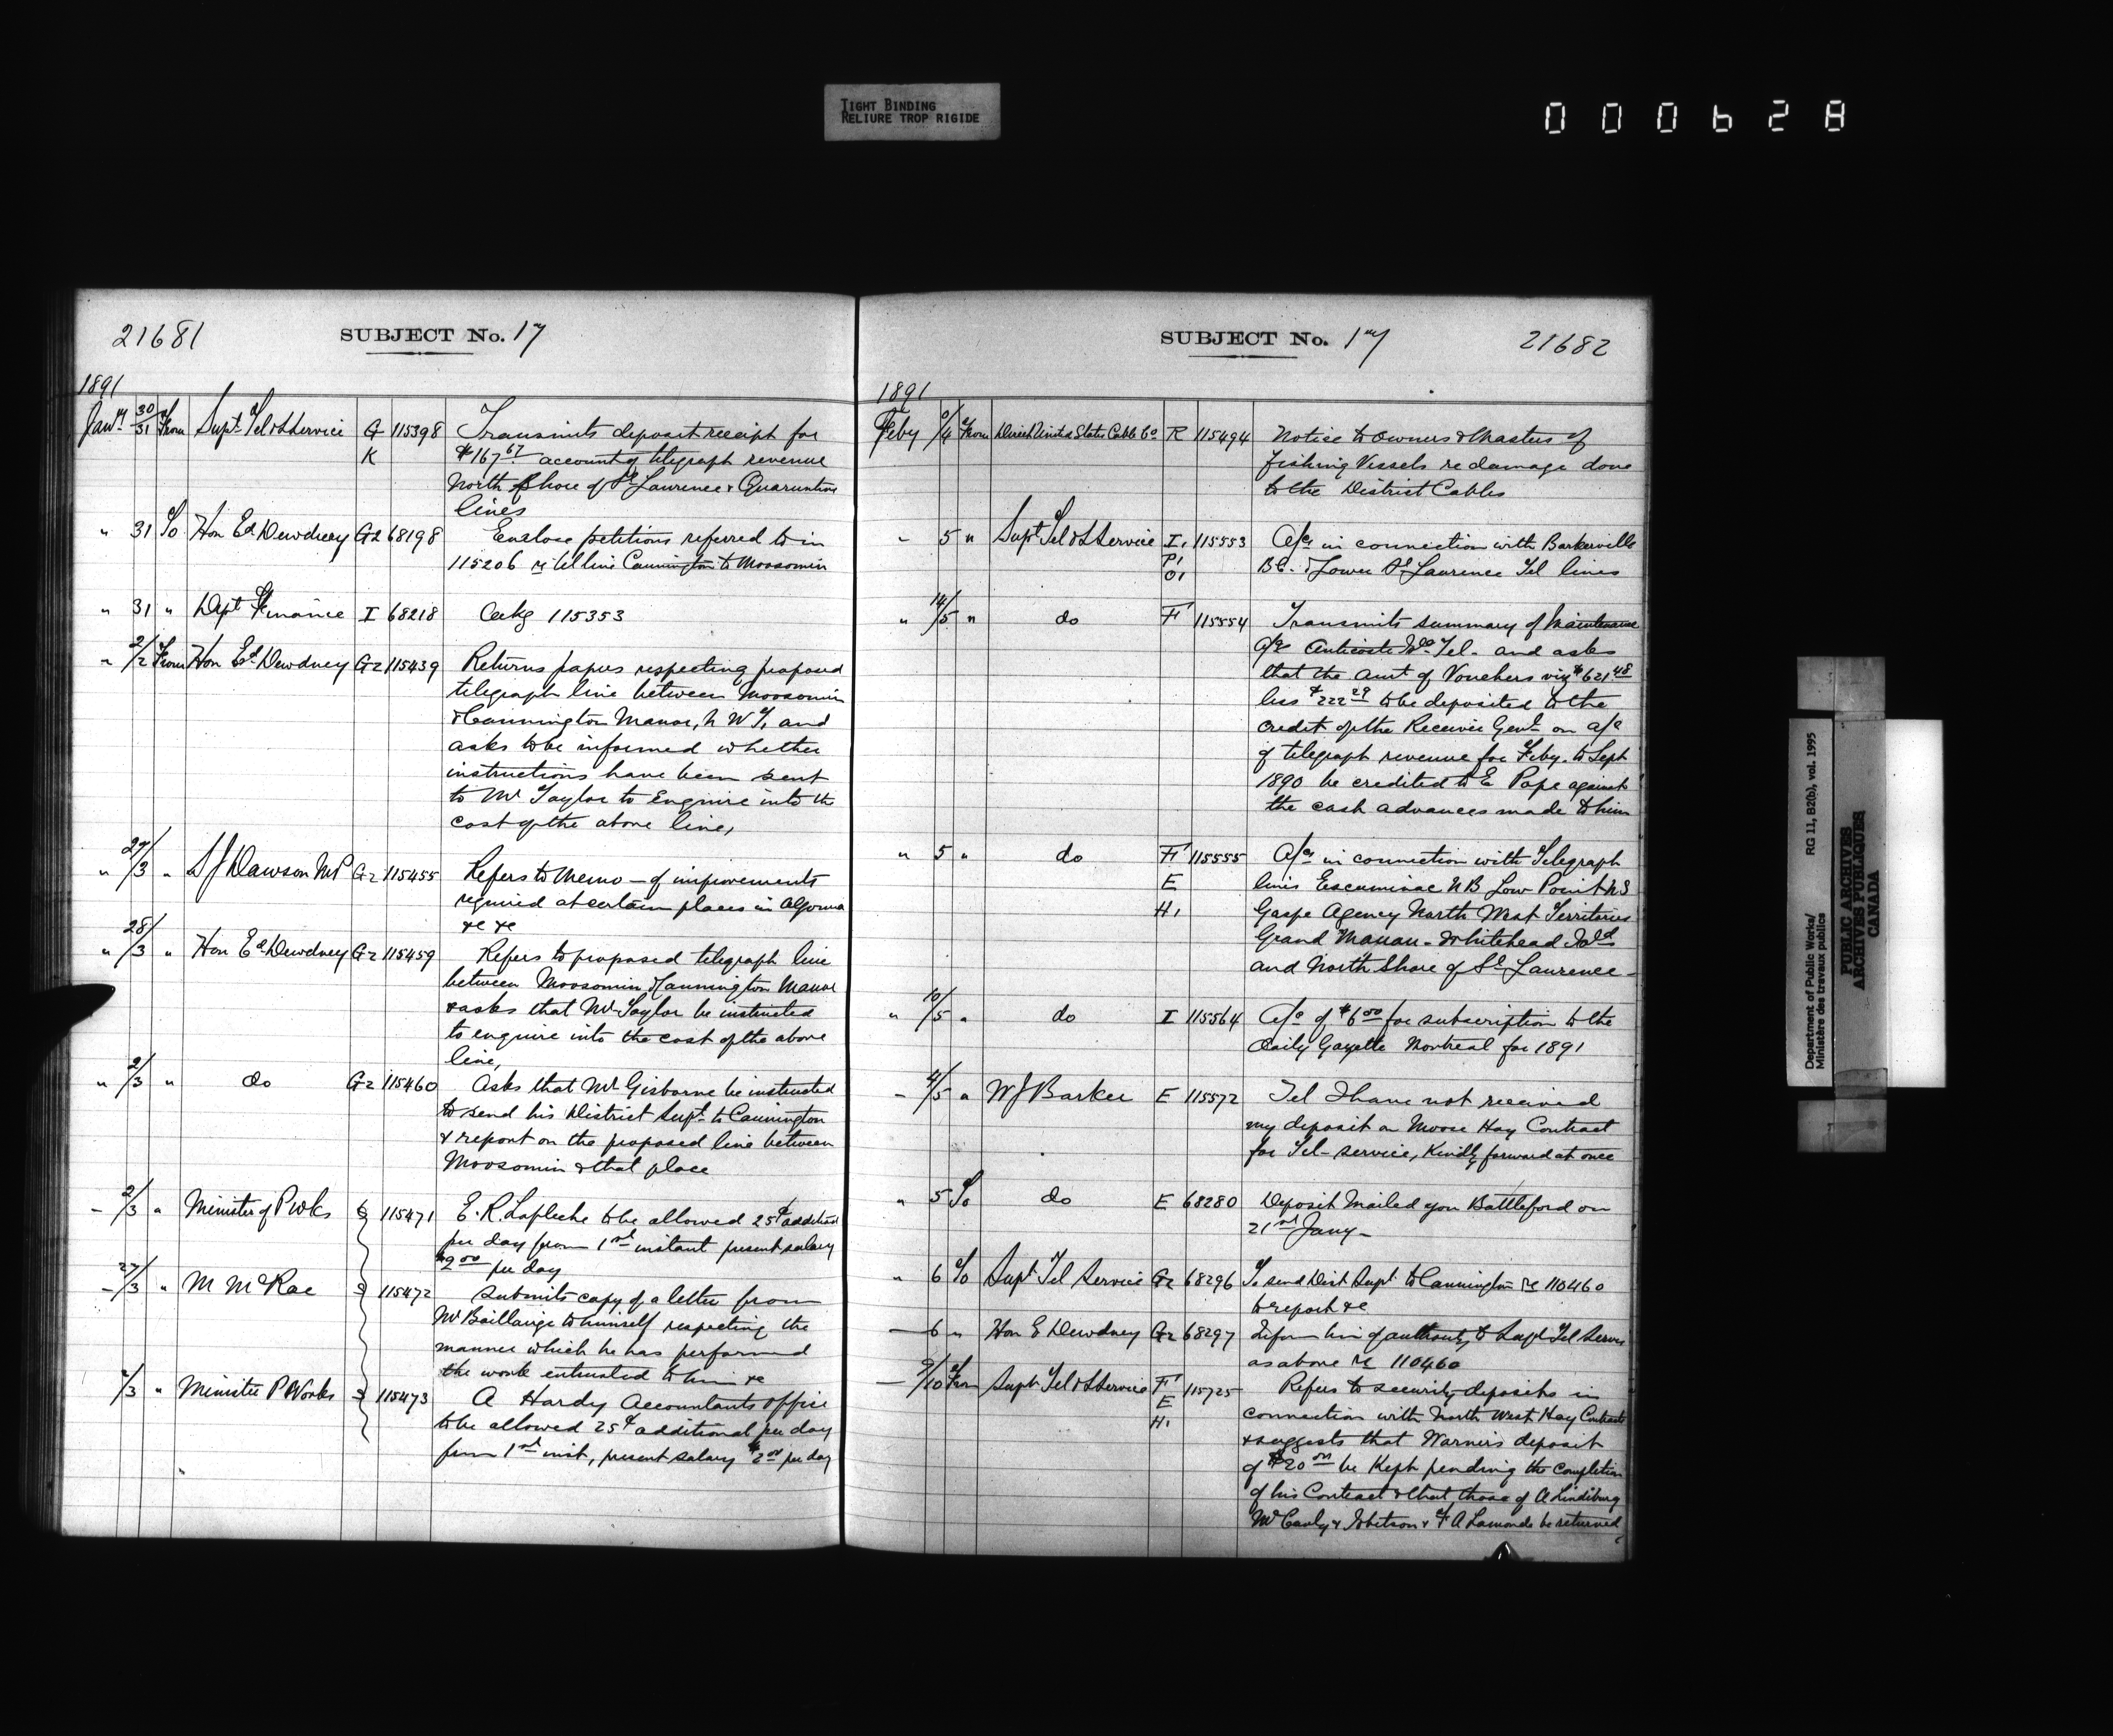 TIGHT BINDING
RELIURE TROP RIGIDE
000628
21681
SUBJECT No. 17
1891
Jany 30/31 From Supt Tel & S Service G 115398 Transmits deposit receipt for
K $167.67 account of telegraph revenue
North Shore of St Laurence & Quarantine
lines
" 31 To Hon Ed Dewdney G2 68198 Enclose petitions referred to in
115206 re tel line Cannington to Moosomin
" 31 " Dept Finance I 68218 Ackg 115353
" 2/2 From Hon Ed Dewdney G2 115439 Returns papers respecting proposed
telegraph line between Moosomin
& Cannington Manor, N W T, and
asks to be informed whether
instructions have been sent
to Mr Taylor to Enquire into the
cost of the above line,
" 27/3 " S J Dawson MP G2 115455 Refers to Memo - of improvements
required at certain places in Algoma
&c &c
" 28/3 " Hon Ed Dewdney G2 115459 Refers to proposed telegraph line
between Moosomin & Cannington Manor
& asks that Mr Taylor be instructed
to enquire into the cost of the above
line,
" 2/3 " do G2 115460 Asks that Mr Gisborne be instructed
to send his District Supt to Cannington
& report on the proposed line between
Moosomin & that place
- 2/3 " Minister of P Wks 115471 E. R. Lafleche to be allowed 25¢ addition
per day from 1st instant present salary
$2.00 per day
- 27/3 " M McRae 115472 Submits copy of a letter from
Mr Baillairgé to himself respecting the
manner which he has performed
the work entrusted to him &c
2/3 " Minister P Works 115473 A Hardy Accountants office
to be allowed 25¢ additional per day
from 1st inst, present salary $2.00 per day
SUBJECT No. 17
21682
1891
Feby /4 From Direct United States Cable Co R 115494 Notice to Owners & Masters of
fishing Vessels re damage done
to the District Cables
" 5 " Supt Tel & S Service I, 115553 A/cs in connection with Barkerville
P' BC. & Lower St Laurence Tel lines
O'
" 14/5 " do F' 115554 Transmits summary of Maintenance
a/c Anticosti Isd Tel - and asks
that the amt of Vouchers viz $621.48
less $222.29 to be deposited to the
credit of the Receiver Genl on a/c
of telegraph revenue for Feby. to Sept
1890 be credited to E Pope against
the cash advances made to him
" 5 " do F' 115555 A/cs in connection with Telegraph
E lines Escuminac NB Low Point NS
H, Gaspe Agency North West Territories
Grand Manan - Whitehead Isld
and North Shore of St Laurence -
" 10/5 " do I 115564 A/c of $6.00 for subscription to the
Daily Gazette Montreal for 1891
- 4/5 " W J Barker E 115572 Tel I have not received
my deposit on Moose Hay Contract
for Tel - service, Kindly forward at once
" 5 To do E 68280 Deposit Mailed you Battleford on
21st Jany -
" 6 To Supt Tel Service G2 68296 To send Dist Supt to Cannington re 110460
to report &c
- 6 " Hon E Dewdney G2 68297 Inform him of authority to Supt Tel Service
as above re 110460
- 9/10 From Supt Tel & S Service F' 115725 Refers to security deposits in
E connection with North West Hay Contracts
H, & suggests that Warner's deposit
of $20.00 be Kept pending the completion
of his Contract & that those of A Lindburg
McCauly & & F A Lamonde be returned
Department of Public Works/
Ministère des travaux publics
RG 11, B2(b), vol. 1995
PUBLIC ARCHIVES
ARCHIVES PUBLIQUES
CANADA